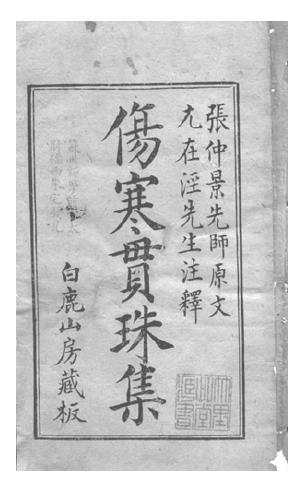 張仲景先師原文
尤在涇先生注釋
傷寒貫珠集
白鹿山房藏板